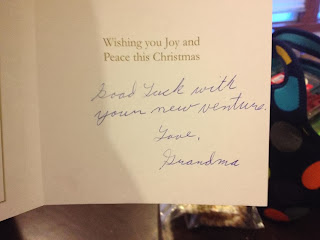 Wishing you Joy and
Peace this Christmas
Good Luck with
your new venture.
Love,
Grandma